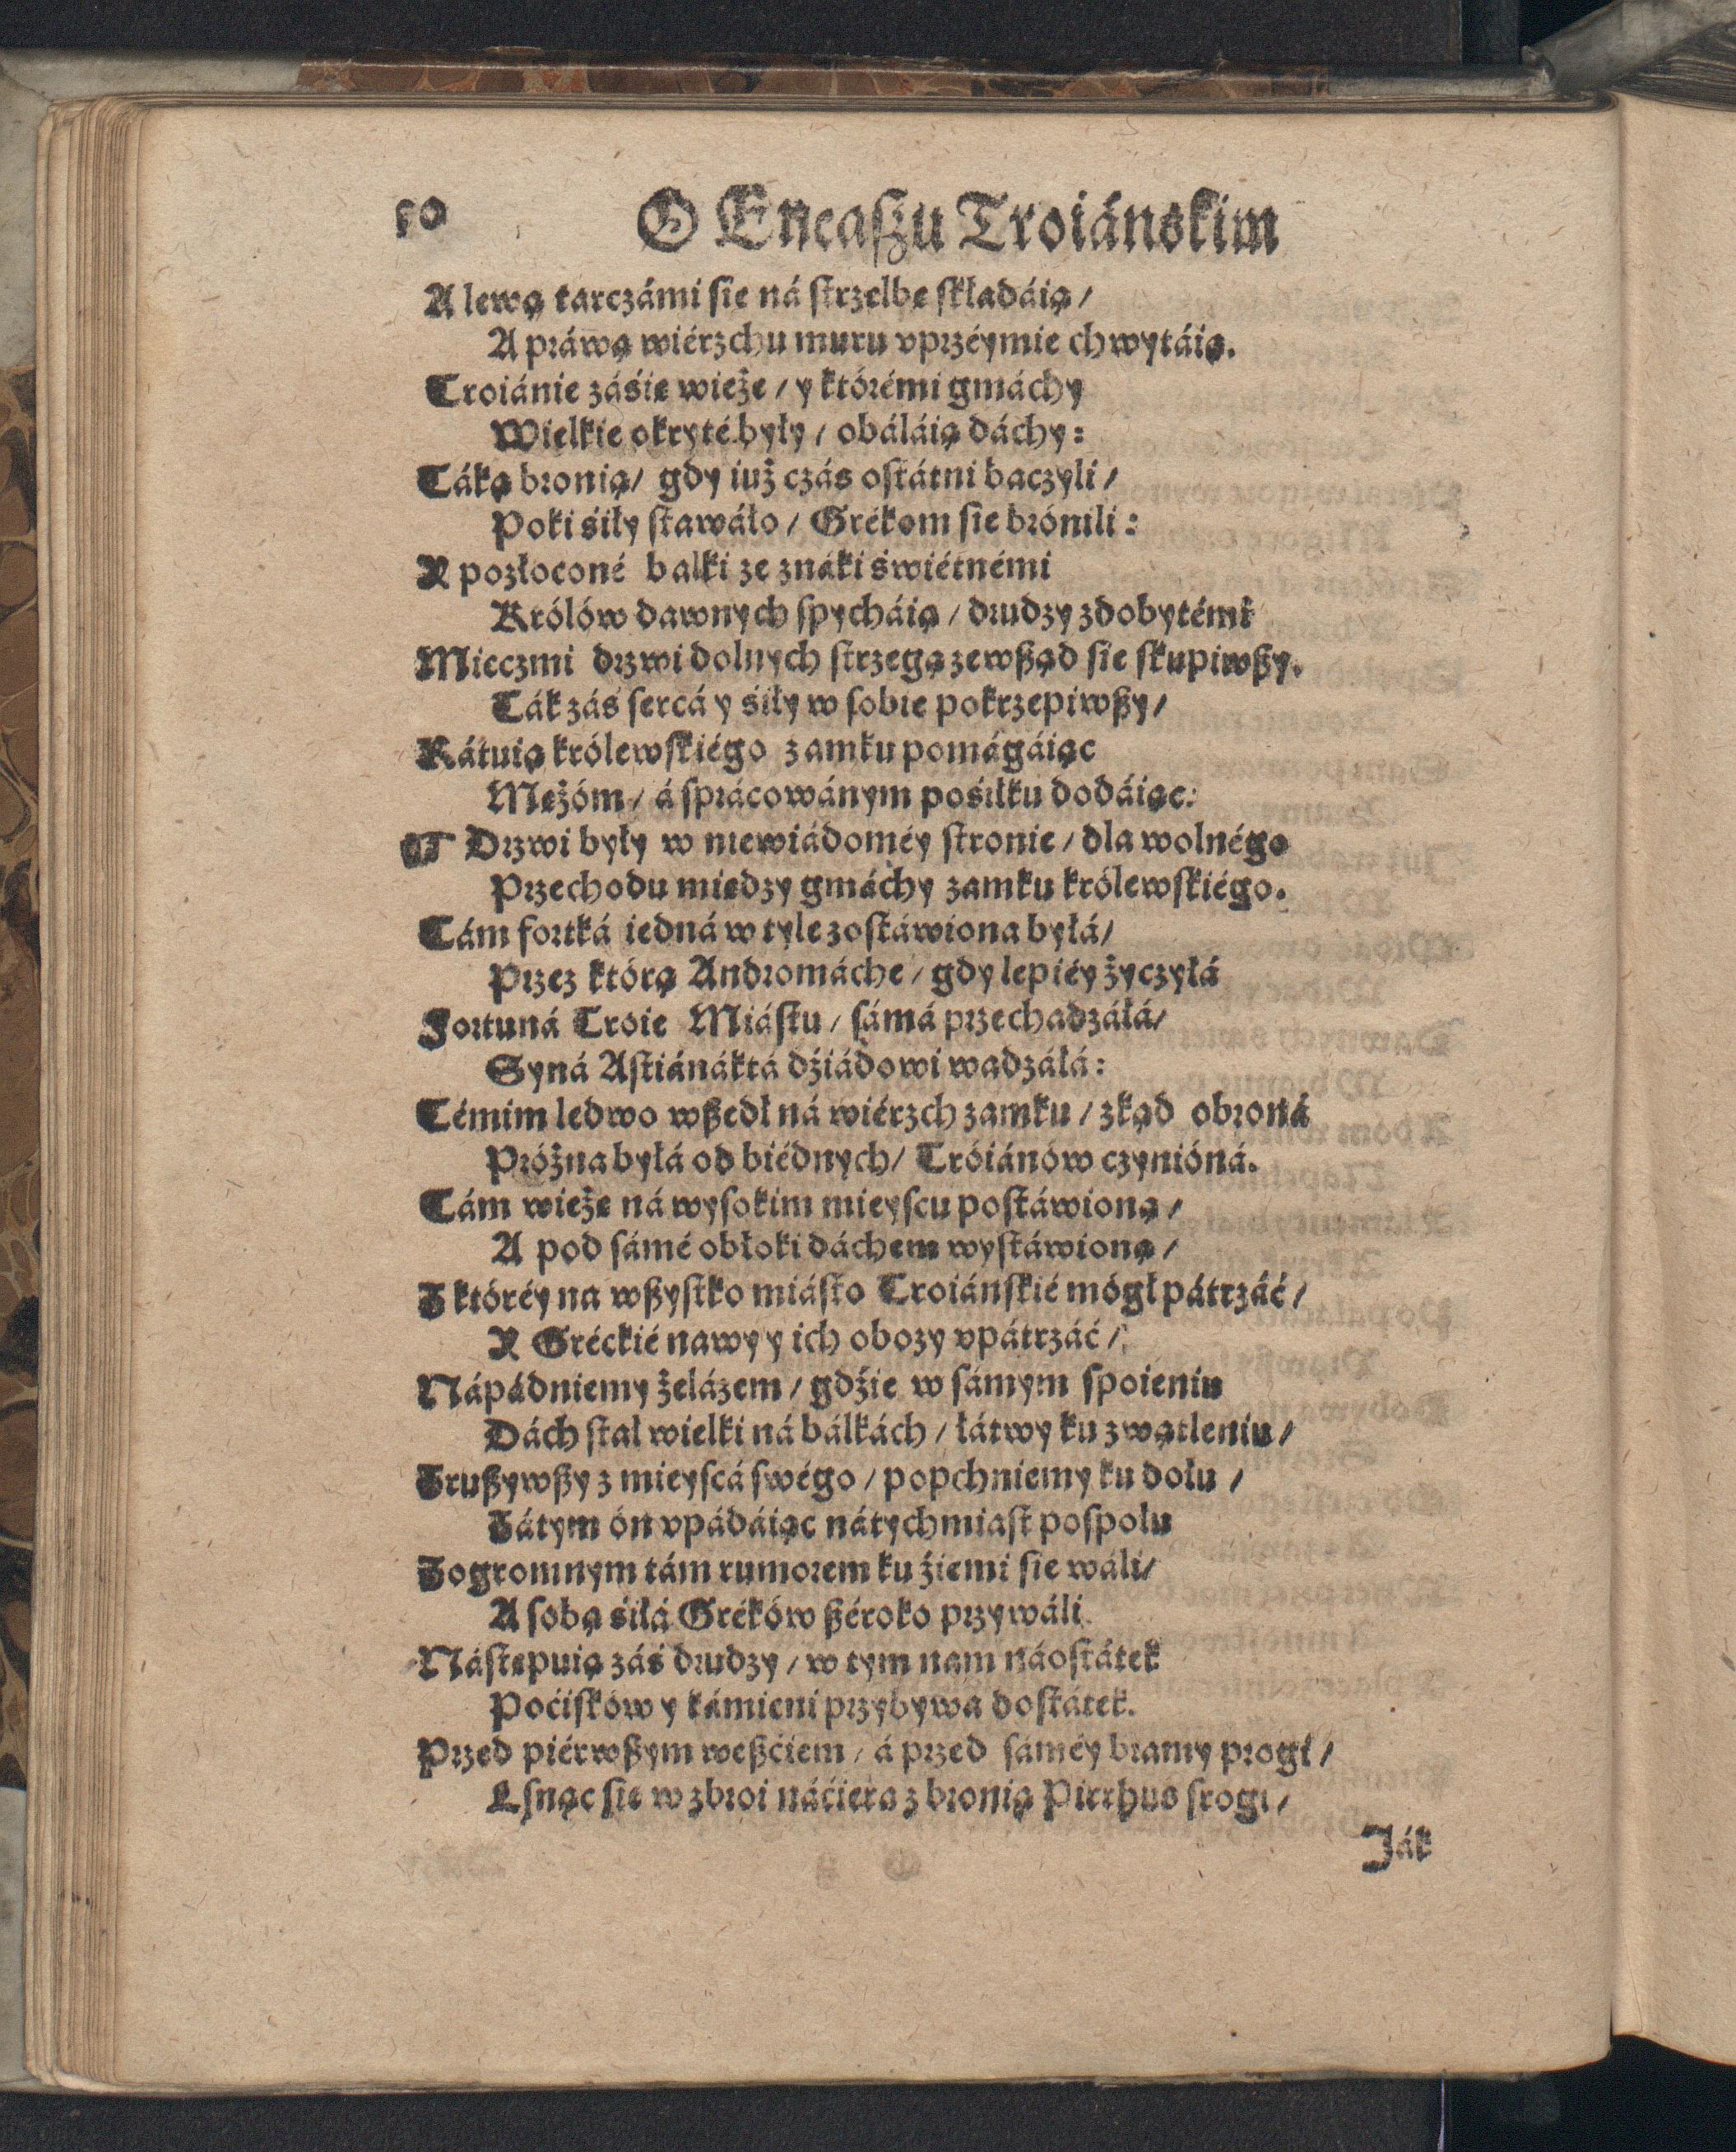 50 O Eneaſzu Troiánskim
A lewą tarczámi ſie ná ſtrzelbę ſkładáią /
A práwą wiérzchu muru vprzéymie chwytáią.
Troiánie záśię wieże / y którémi gmáchy
Wielkie okryté były / obáláią dáchy:
Táką bronią / gdy iuż czás oſtátni baczyli /
Poki śiły ſtawáło / Grékom ſie brónili:
Y pozłoconé balki ze znáki świétnémi
Królów dawnych ſpycháią / drudzy zdobytémi
Mieczmi drzwi dolnych ſtrzegą zewßąd ſie ſkupiwßy.
Ták záś ſercá y śiły w ſobie pokrzepiwßy /
Rátuią królewſkiégo zamku pomágáiąc
Mężóm / á ſprácowánym pośiłku dodáiąc:
Drzwi były w niewiádoméy ſtronie / dla wolnégo
Przechodu miedzy gmáchy zamku królewſkiégo.
Tám fortká iedná w tyle zoſtáwiona byłá /
Przez którą Andromáche / gdy lepiéy życzyłá
Fortuná Troie Miáſtu / ſámá przechadzáłá /
Syná Aſtiánáktá dźiádowi wadzáłá:
Témim ledwo wßedł ná wiérzch zamku / zkąd obroná
Próżna byłá od biédnych / Tróiánów czynióná.
Tám wieżę ná wyſokim mieyſcu poſtáwioną /
A pod ſámé obłoki dáchem wyſtáwioną /
Z któréy na wßyſtko miáſto Troiánſkié mógł pátrzáć /
Y Gréckié nawy y ich obozy vpátrzáć /
Nápádniemy żelázem / gdźie w ſámym ſpoieniu
Dách ſtał wielki ná bálkách / łátwy ku zwątleniu /
Zrußywßy z mieyſcá ſwégo / popchniemy ku dołu /
Zátym ón vpádáiąc nátychmiaſt poſpołu
Z ogromnym tám rumorem ku źiemi ſie wáli /
A ſobą śiłá Gréków ßéroko przywáli
Náſtępuią záś drudzy / w tym nam náoſtátek
Poćiſków y kámieni przybywa doſtátek.
Przed piérwßym weßćiem / á przed ſáméy bramy progi /
Lſnąc ſie w zbroi náćiera z bronią Pirrhus ſrogi /
Ják